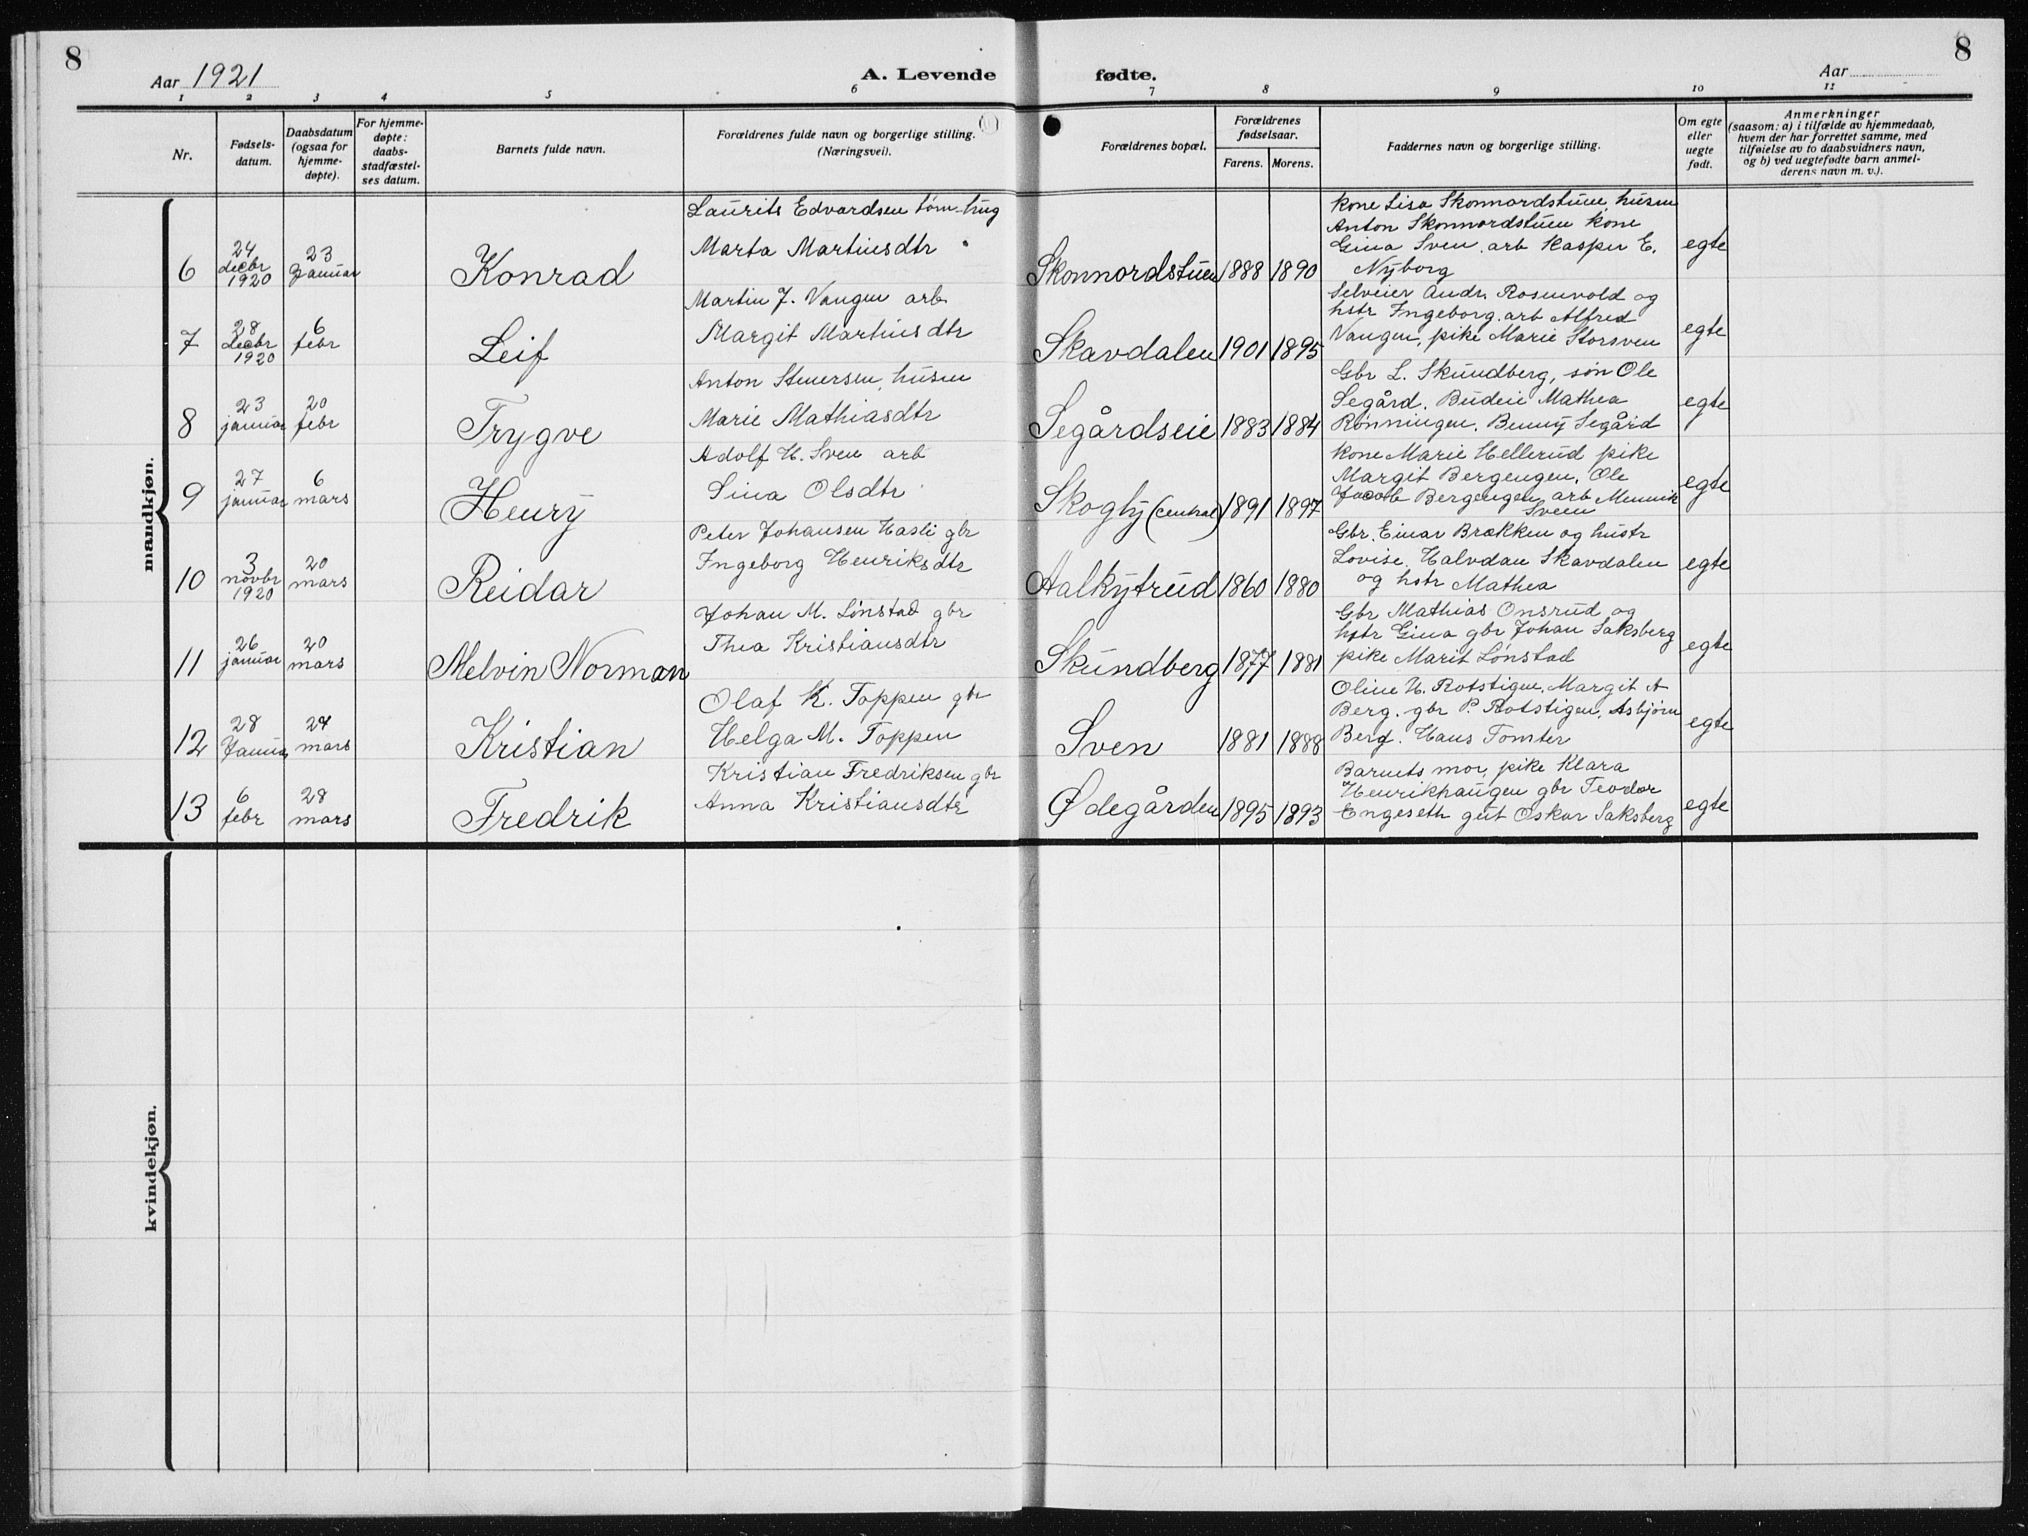 8
Aar 1921
A. Levende fødte.
Aar
8
1 2 3 4 5 6 7 8 9 10 11
Nr.
Fødsels-
datum.
Daabsdatum
(ogsaa for
hjemme-
døpte).
For hjemme-
døpte:
daabs-
stadfæstel-
ses datum.
Barnets fulde navn.
Forældrenes fulde navn og borgerlige stilling.
(Næringsvei).
Forældrenes bopæl.
Forældrenes
fødselsaar.
Farens. Morens.
Faddernes navn og borgerlige stilling.
Om egte
eller
uegte
født.
Anmerkninger
(saasom: a) i tilfælde av hjemmedaab,
hvem der har forrettet samme, med
tilføielse av to daabsvidners navn,
og b) ved uegtefødte barn anmel-
derens navn m. v.).
mandkjøn.
6
24
decbr
1920
23
Januar
Konrad
Laurits Edvardsen tøm-hug
Marta Martinsdtr
Skonnordstuen
1888
1890
kone Lisa Skonnordstuen, husm
Anton Skonnordstuen kone
Gina Sven. arb Kasper E.
Nyborg
egte
7
28
decbr
1920
6
febr
Leif
Martin J. Vangen arb
Margit Martinsdtr
Skavdalen
1901
1895
Selveier Andr. Rosenvold og
hstr Ingeborg. arb Alfred
Vangen, pike Marie Storsven
egte
8
23
januar
20
febr
Trygve
Anton Stenersen, husm
Marie Mathiasdtr
Segårdseie
1883
1884
Gbr L. Skundberg, søn Ole
Segård. Budeie Mathea
Rønningen. Benny Segård
egte
9
27
januar
6
mars
Henry
Adolf H. Sven arb
Sina Olsdtr
Skogly (central)
1891
1897
kone Marie Hellerud pike
Margit Bergengen, Ole
Jacob Bergengen arb Minnik
Sveen
egte
10
3
novbr
1920
20
mars
Reidar
Peter Johansen Hasli gbr
Ingeborg Henriksdtr
Aalkytrud
1860
1880
Gbr. Einar Brækken og hustr
Lovise. Halvdan Skavdalen
og hstr Mathea
egte
11
26
januar
20
mars
Melvin Norman
Johan M. Lønstad gbr
Thea Kristiansdtr
Skundberg
1877
1881
Gbr Mathias Onsrud og
hstr Gina gbr Johan Saksberg
pike Marit Lønstad
egte
12
28
Januar
24
mars
Kristian
Olaf K. Toppen gbr
Helga M. Toppen
Sven
1881
1888
Oline H. Rotstigen, Margit A
Berg. gbr P. Rotstigen, Asbjørn
Berg. Hans Tomter
egte
13
6
febr
28
mars
Fredrik
Kristian Fredriksen gbr
Anna Kristiansdtr
Ødegården
1895
1893
Barnets mor, pike Klara
Henrikhaugen gbr Teodor
Engeseth gut Oskar Saksberg
egte
kvindekjøn.